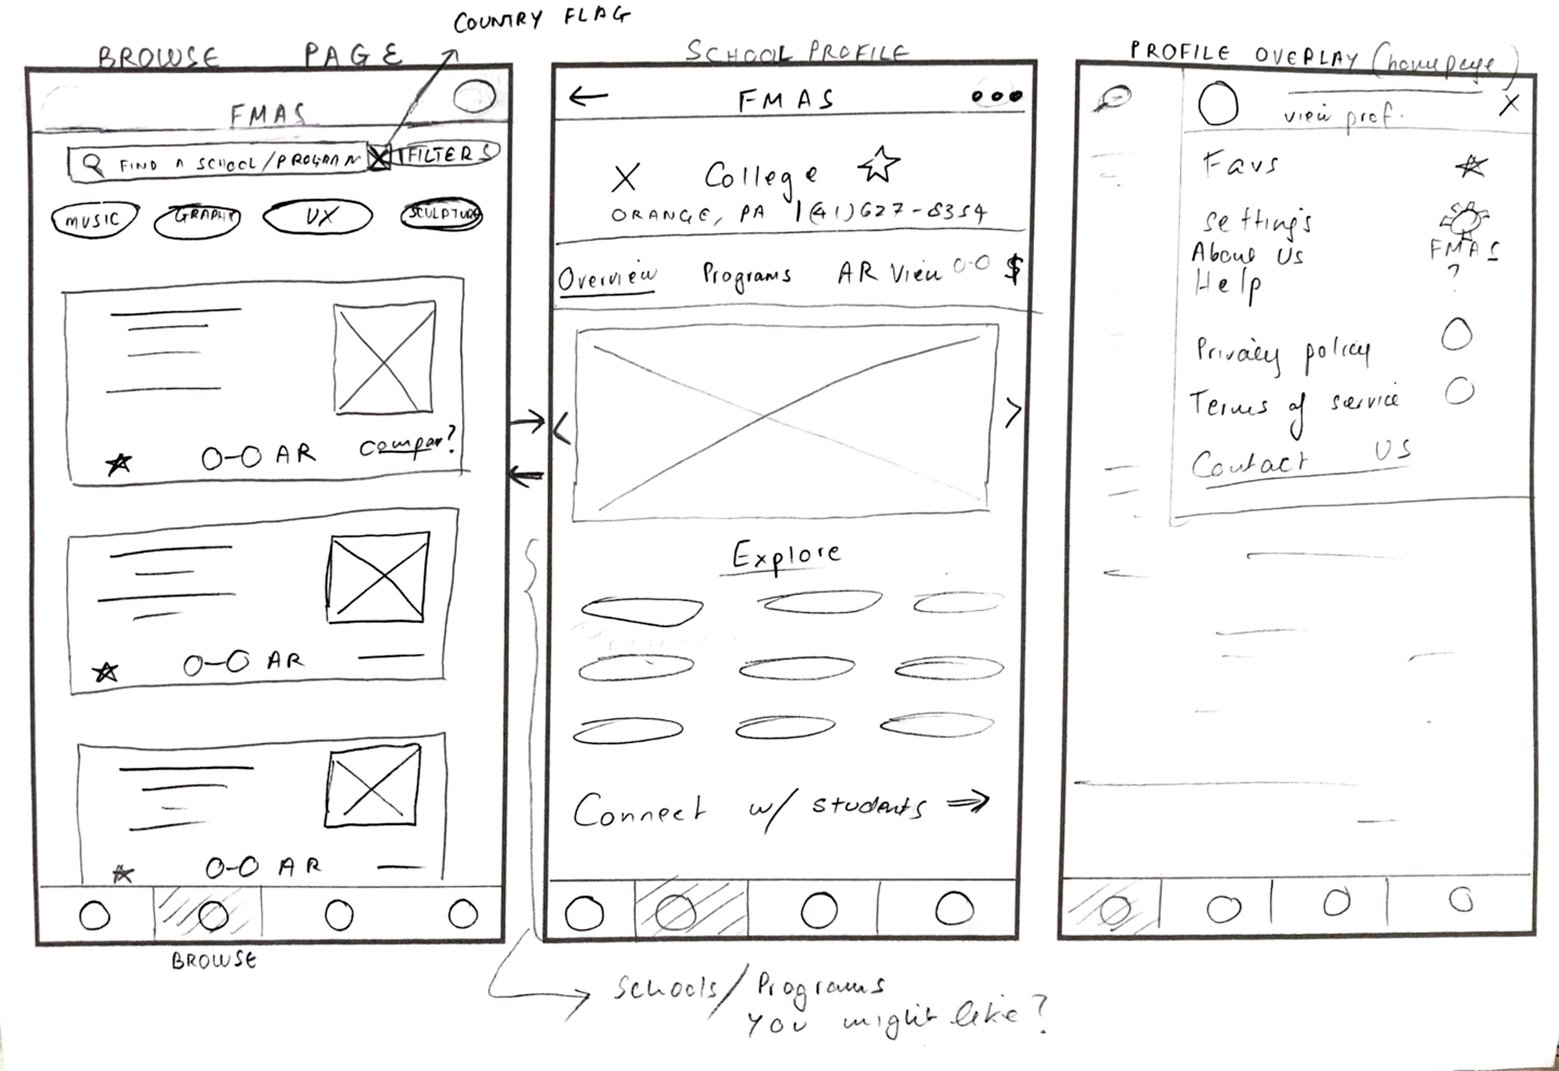 COUNTRY FLAG
BROWSE PAGE
FMAS
FIND A SCHOOL/PROGRAM
FILTERS
MUSIC
GRAPHI
UX
SCULPTURE
AR
compar?
AR
AR
BROWSE
SCHOOL PROFILE
FMAS
X College
ORANGE, PA 1(41)627-8354
Overview Programs AR View $
Explore
Connect w/ students
Schools/Programs
you might like?
PROFILE OVERLAY (homepage)
view prof. X
Favs
settings
About Us FMAS
Help ?
Privacy policy
Terms of service
Contact US